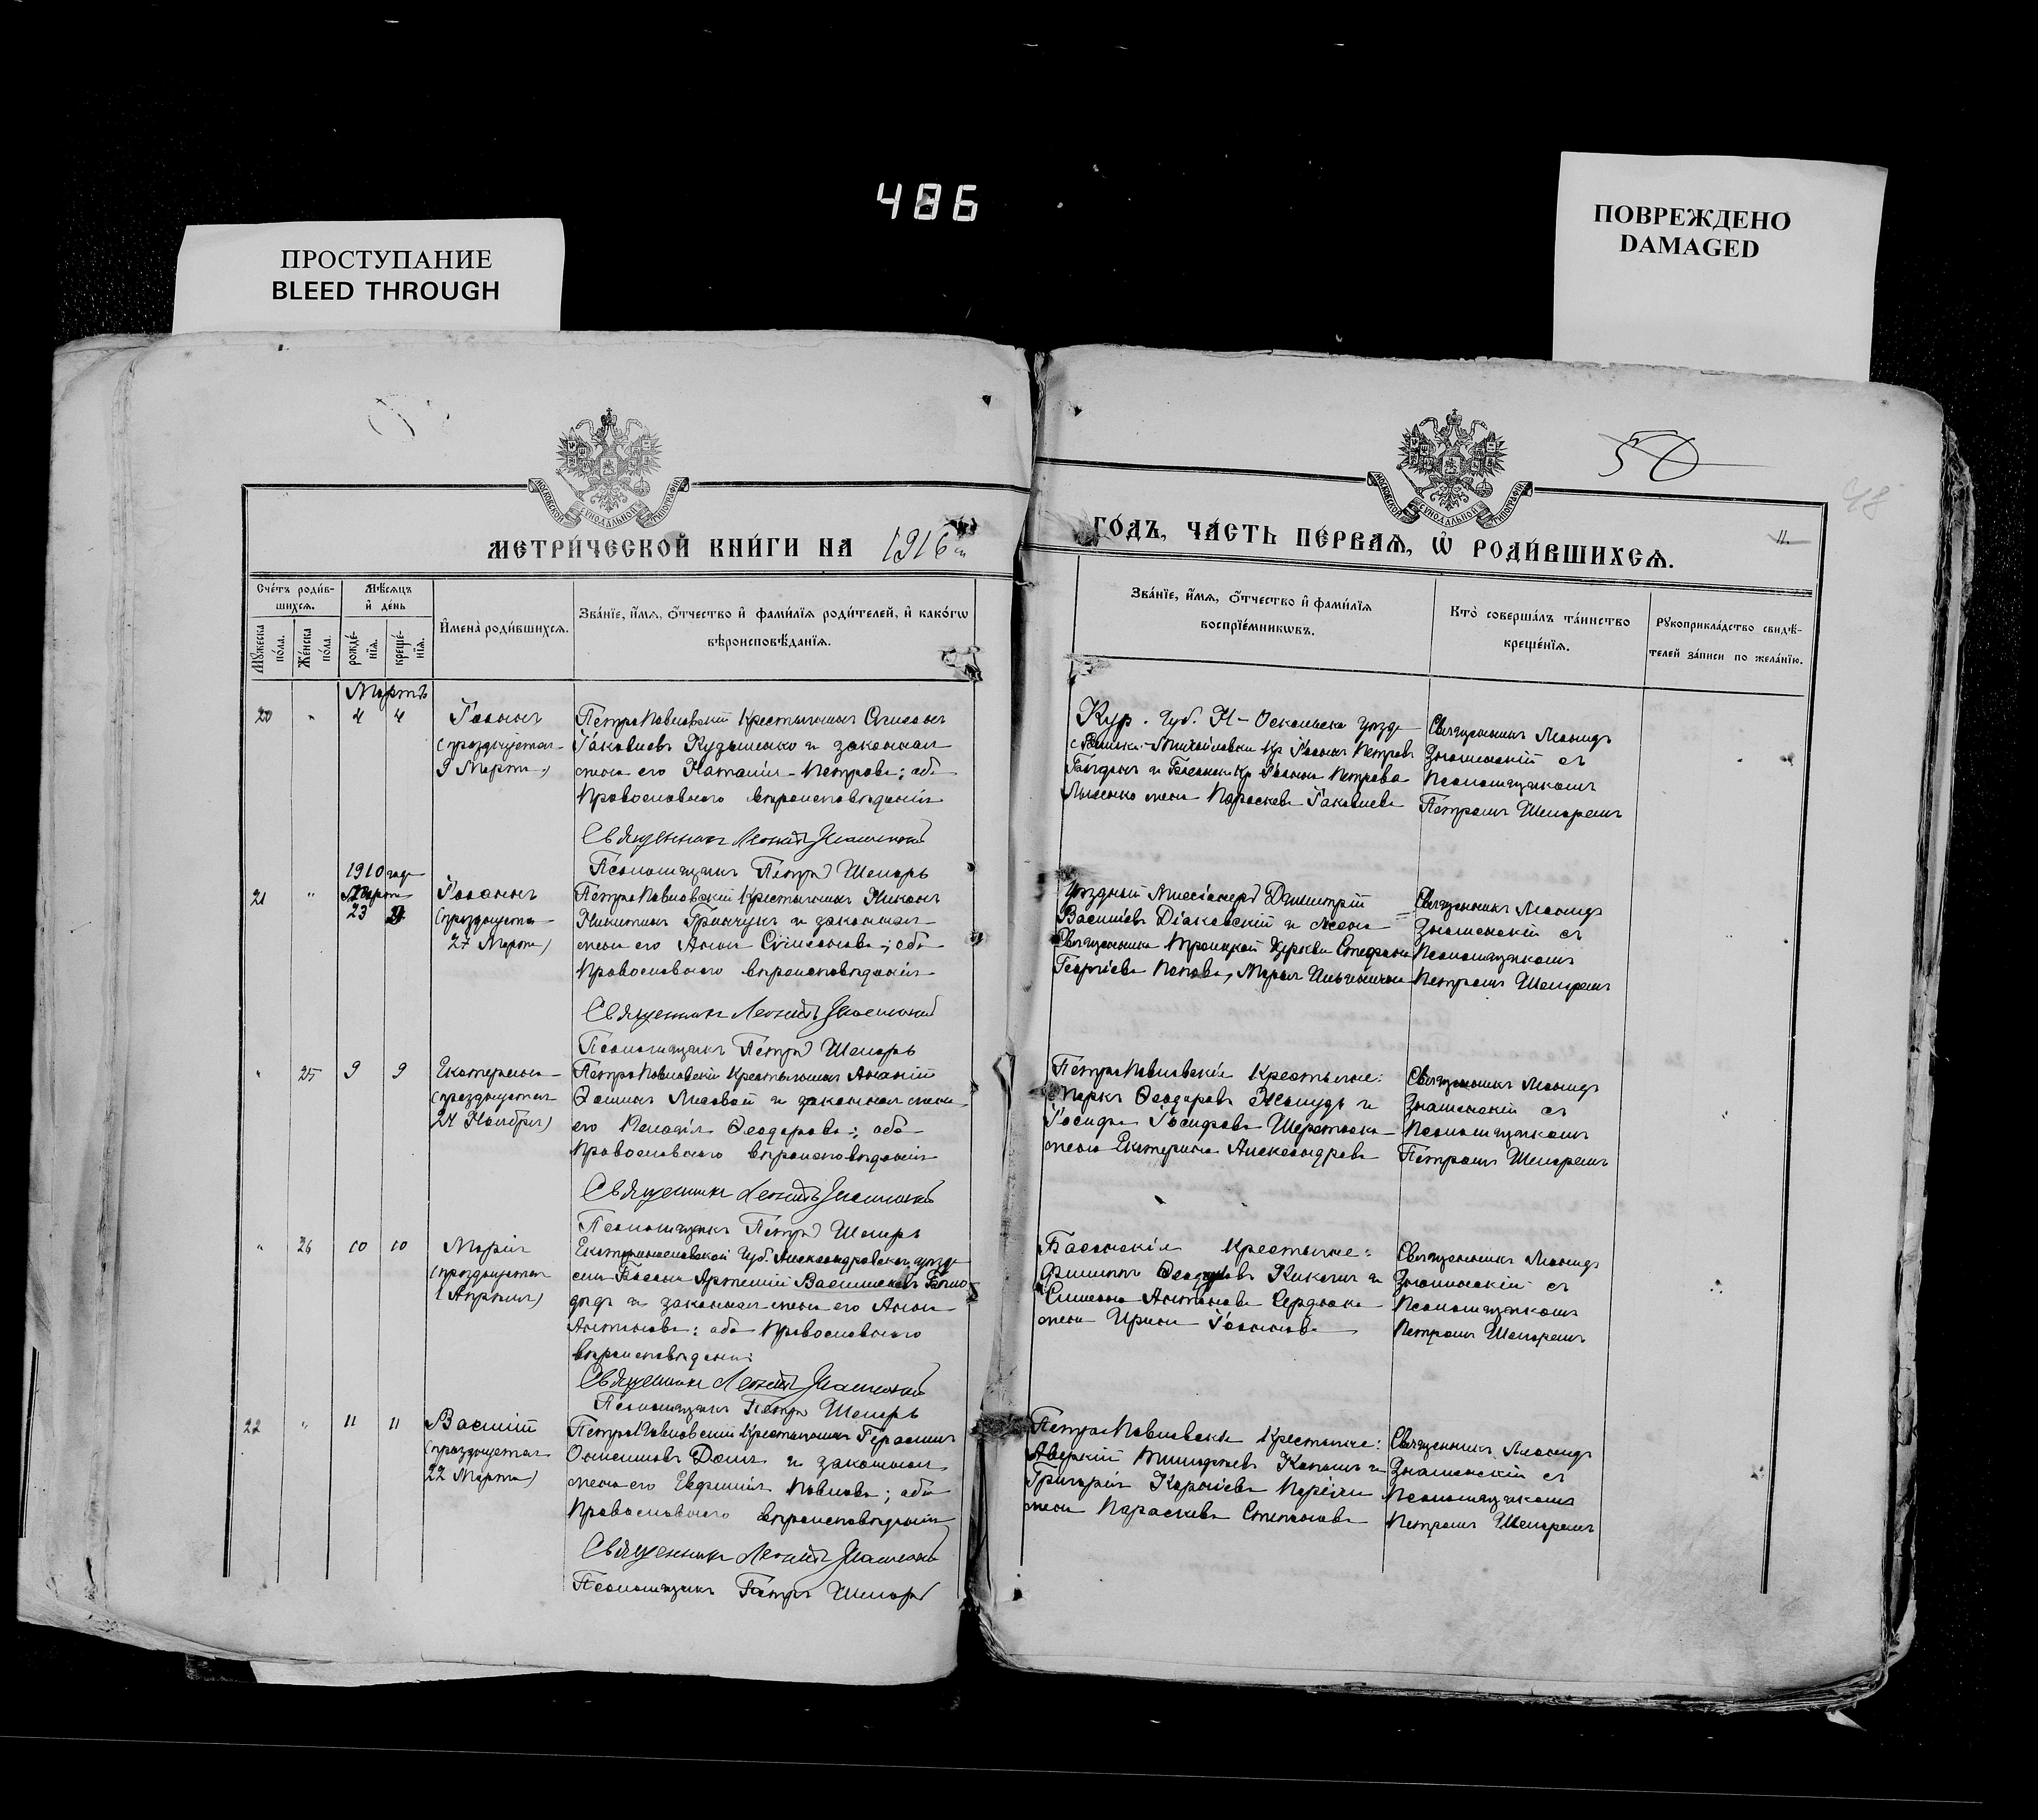 486
ПРОСТУПАНИЕ
BLEED THROUGH
ПОВРЕЖДЕНО
DAMAGED
50
48
МОСКОВСКОЙ СѴНОДАЛЬНОЙ ТИПОГРАФІИ
МОСКОВСКОЙ СѴНОДАЛЬНОЙ ТИПОГРАФІИ
МЕТРИ́ЧЕСКОЙ КНИ́ГИ НА 1916
ГО́ДЪ, ЧА́СТЬ ПЕ́РВАѦ, Ѡ҆ РОДИ́ВШИХСѦ.
11.
Сче́тъ роди́в-
шихсѧ.
Мꙋ́жеска по́ла.
Же́нска по́ла.
Мѣ́сѧцъ
и҆ де́нь
рожде́-
нїѧ.
креще́-
нїѧ.
И҆мена̀ роди́вшихсѧ.
Зва́нїе, и҆́мѧ, ѻ҆́тчество и҆ фами́лїѧ роди́телей, и҆ како́гѡ
вѣроисповѣ́данїѧ.
Зва́нїе, и҆́мѧ, ѻ҆́тчество и҆ фами́лїѧ
воспрїе́мникѡвъ.
Кто̀ соверша́лъ та́инство
креще́нїѧ.
Рꙋкоприкла́дство свидѣ́-
телей за́писи по жела́нїю.
Мартъ
20 " 4 4
Іоаннъ
(празднуется
9 Марта)
ПетроПавловскій Крестьянинъ Симеонъ
Іаковлевъ Кузьменко и законная
жена его Наталія Петрова; оба
Православнаго вѣроисповѣданія
Священникъ Леонидъ Знаменскій
Псаломщикъ Петръ Шепарь
Кур. Губ. Н-Оскольска уѣзд
Михайловки Кр Іоаннъ Петровъ
Кр Іоанна Петрова
Лысенко жена Параскева Іаковлева
Священникъ Леонидъ
Знаменскій съ
Псаломщикомъ
Петромъ Шепаремъ
1910 года
Марта
21 " 23
Іоаннъ
(празднуется
27 Марта)
ПетроПавловскій Крестьянинъ Никонъ
Никитинъ Гринчукъ и законная
жена его Анна Симеонова; оба
Православнаго вѣроисповѣданія
Священникъ Леонидъ Знаменскій
Псаломщикъ Петръ Шепарь
Уѣздный Миссіонеръ Димитрій
Васильевъ Діаковскій и жена
Священника Троицкой Церкви Стефана
Георгіева Попова, Марія Ильинична
Священникъ Леонидъ
Знаменскій съ
Псаломщикомъ
Петромъ Шепаремъ
" 25 9 9
Екатерина
(празднуется
24 Ноября)
ПетроПавловскій Крестьянинъ Ананій
Ѳоминъ Лисовой и законная жена
его Пелагія Ѳеодорова; оба
Православнаго вѣроисповѣданія
Священникъ Леонидъ Знаменскій
Псаломщикъ Петръ Шепарь
ПетроПавловскіе Крестьяне:
Маркъ Ѳеодоровъ и
Іосифа Іосифова
жена Екатерина Александрова
Священникъ Леонидъ
Знаменскій съ
Псаломщикомъ
Петромъ Шепаремъ
" 26 10 10
Марія
(празднуется
1 Апрѣля)
Екатеринославской Губ. Александровска уѣзд
села Басани Артемій Васильевъ
и законная жена его Анна
Антонова; оба Православнаго
вѣроисповѣданія
Священникъ Леонидъ Знаменскій
Псаломщикъ Петръ Шепарь
Басанскіе Крестьяне:
Филиппъ Ѳеодоровъ и
Симеона Антонова Сердюка
жена Ирина Іоаннова
Священникъ Леонидъ
Знаменскій съ
Псаломщикомъ
Петромъ Шепаремъ
22 " 11 11
Василій
(празднуется
22 Марта)
ПетроПавловскій Крестьянинъ Герасимъ
и законная
жена его Евфимія Павлова; оба
Православнаго вѣроисповѣданія
Священникъ Леонидъ Знаменскій
Псаломщикъ Петръ Шепарь
ПетроПавловскіе Крестьяне:
Аверкій Тимофѣевъ и
Григорія
жена Параскева Степанова
Священникъ Леонидъ
Знаменскій съ
Псаломщикомъ
Петромъ Шепаремъ